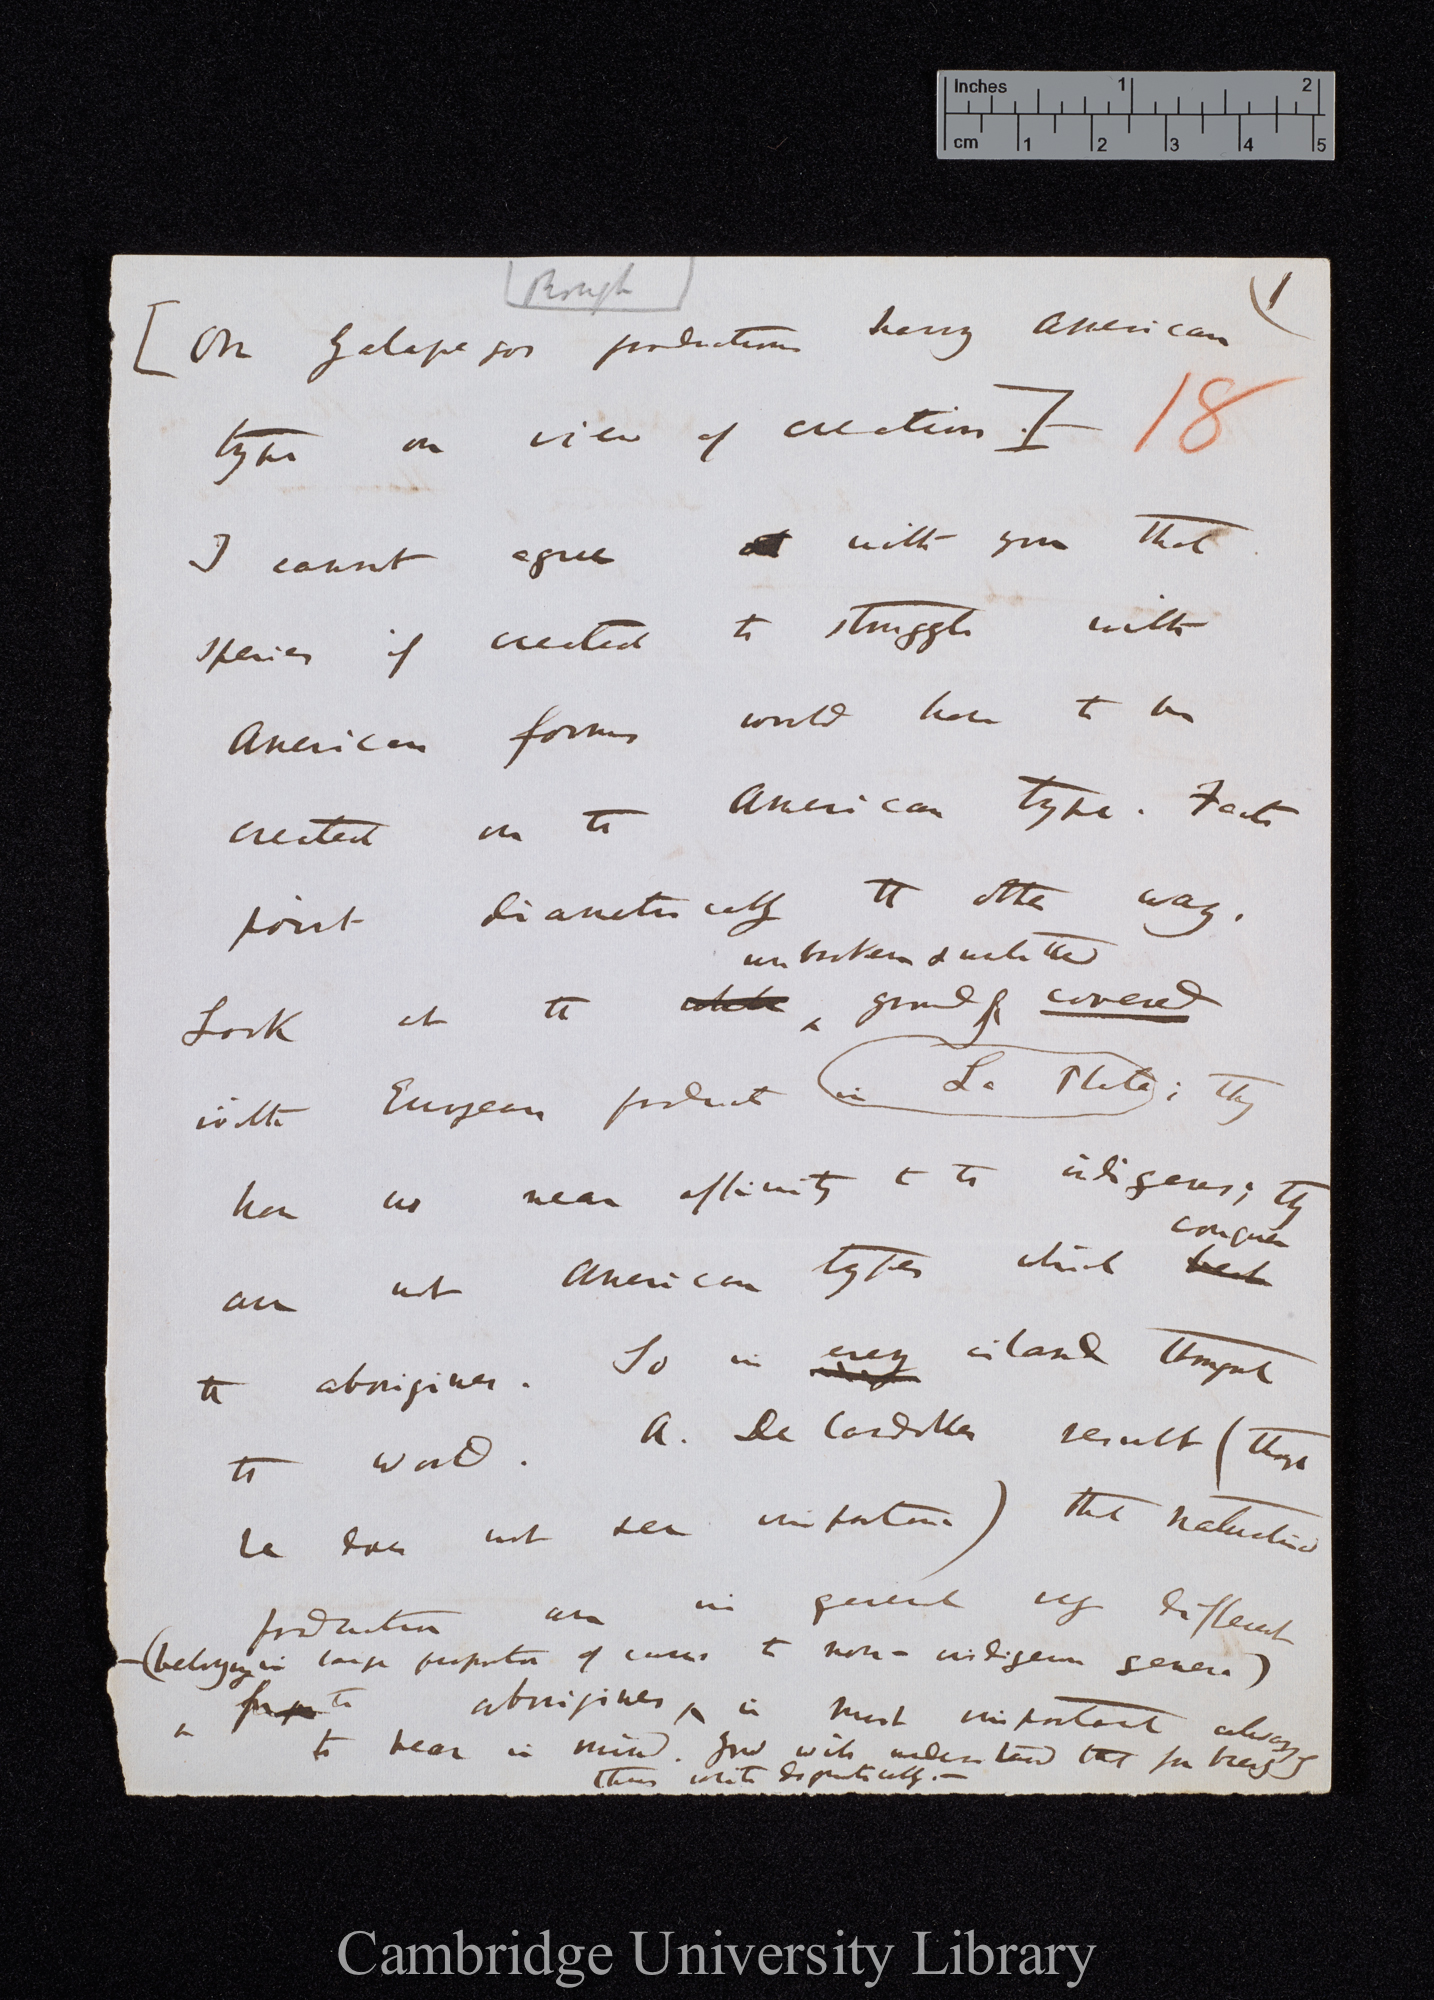 Inches 1 2
cm 1 2 3 4 5
Rough
1
[On Galapagos productions having American
type on view of creation.]— 18
I cannot agree with you that
species if created to struggle with
American forms would have to be
created on the American type. Facts
point diametrically the other way.
unbroken & untilled
Look at the ground, covered
with European products in La Plata; they
have no near affinity to the indigenes; they
conquer
are not American types which beat
the aborigines. So in every island throughout
the world. A. De Candolles result (though
he does not see importance) that naturalised
productions are in general very different
—(belonging in large proportion of cases to non-indigenous genera)
from the aborigines, is most important always
to bear in mind. You will understand that for brevity
thus write dogmatically.—
Cambridge University Library